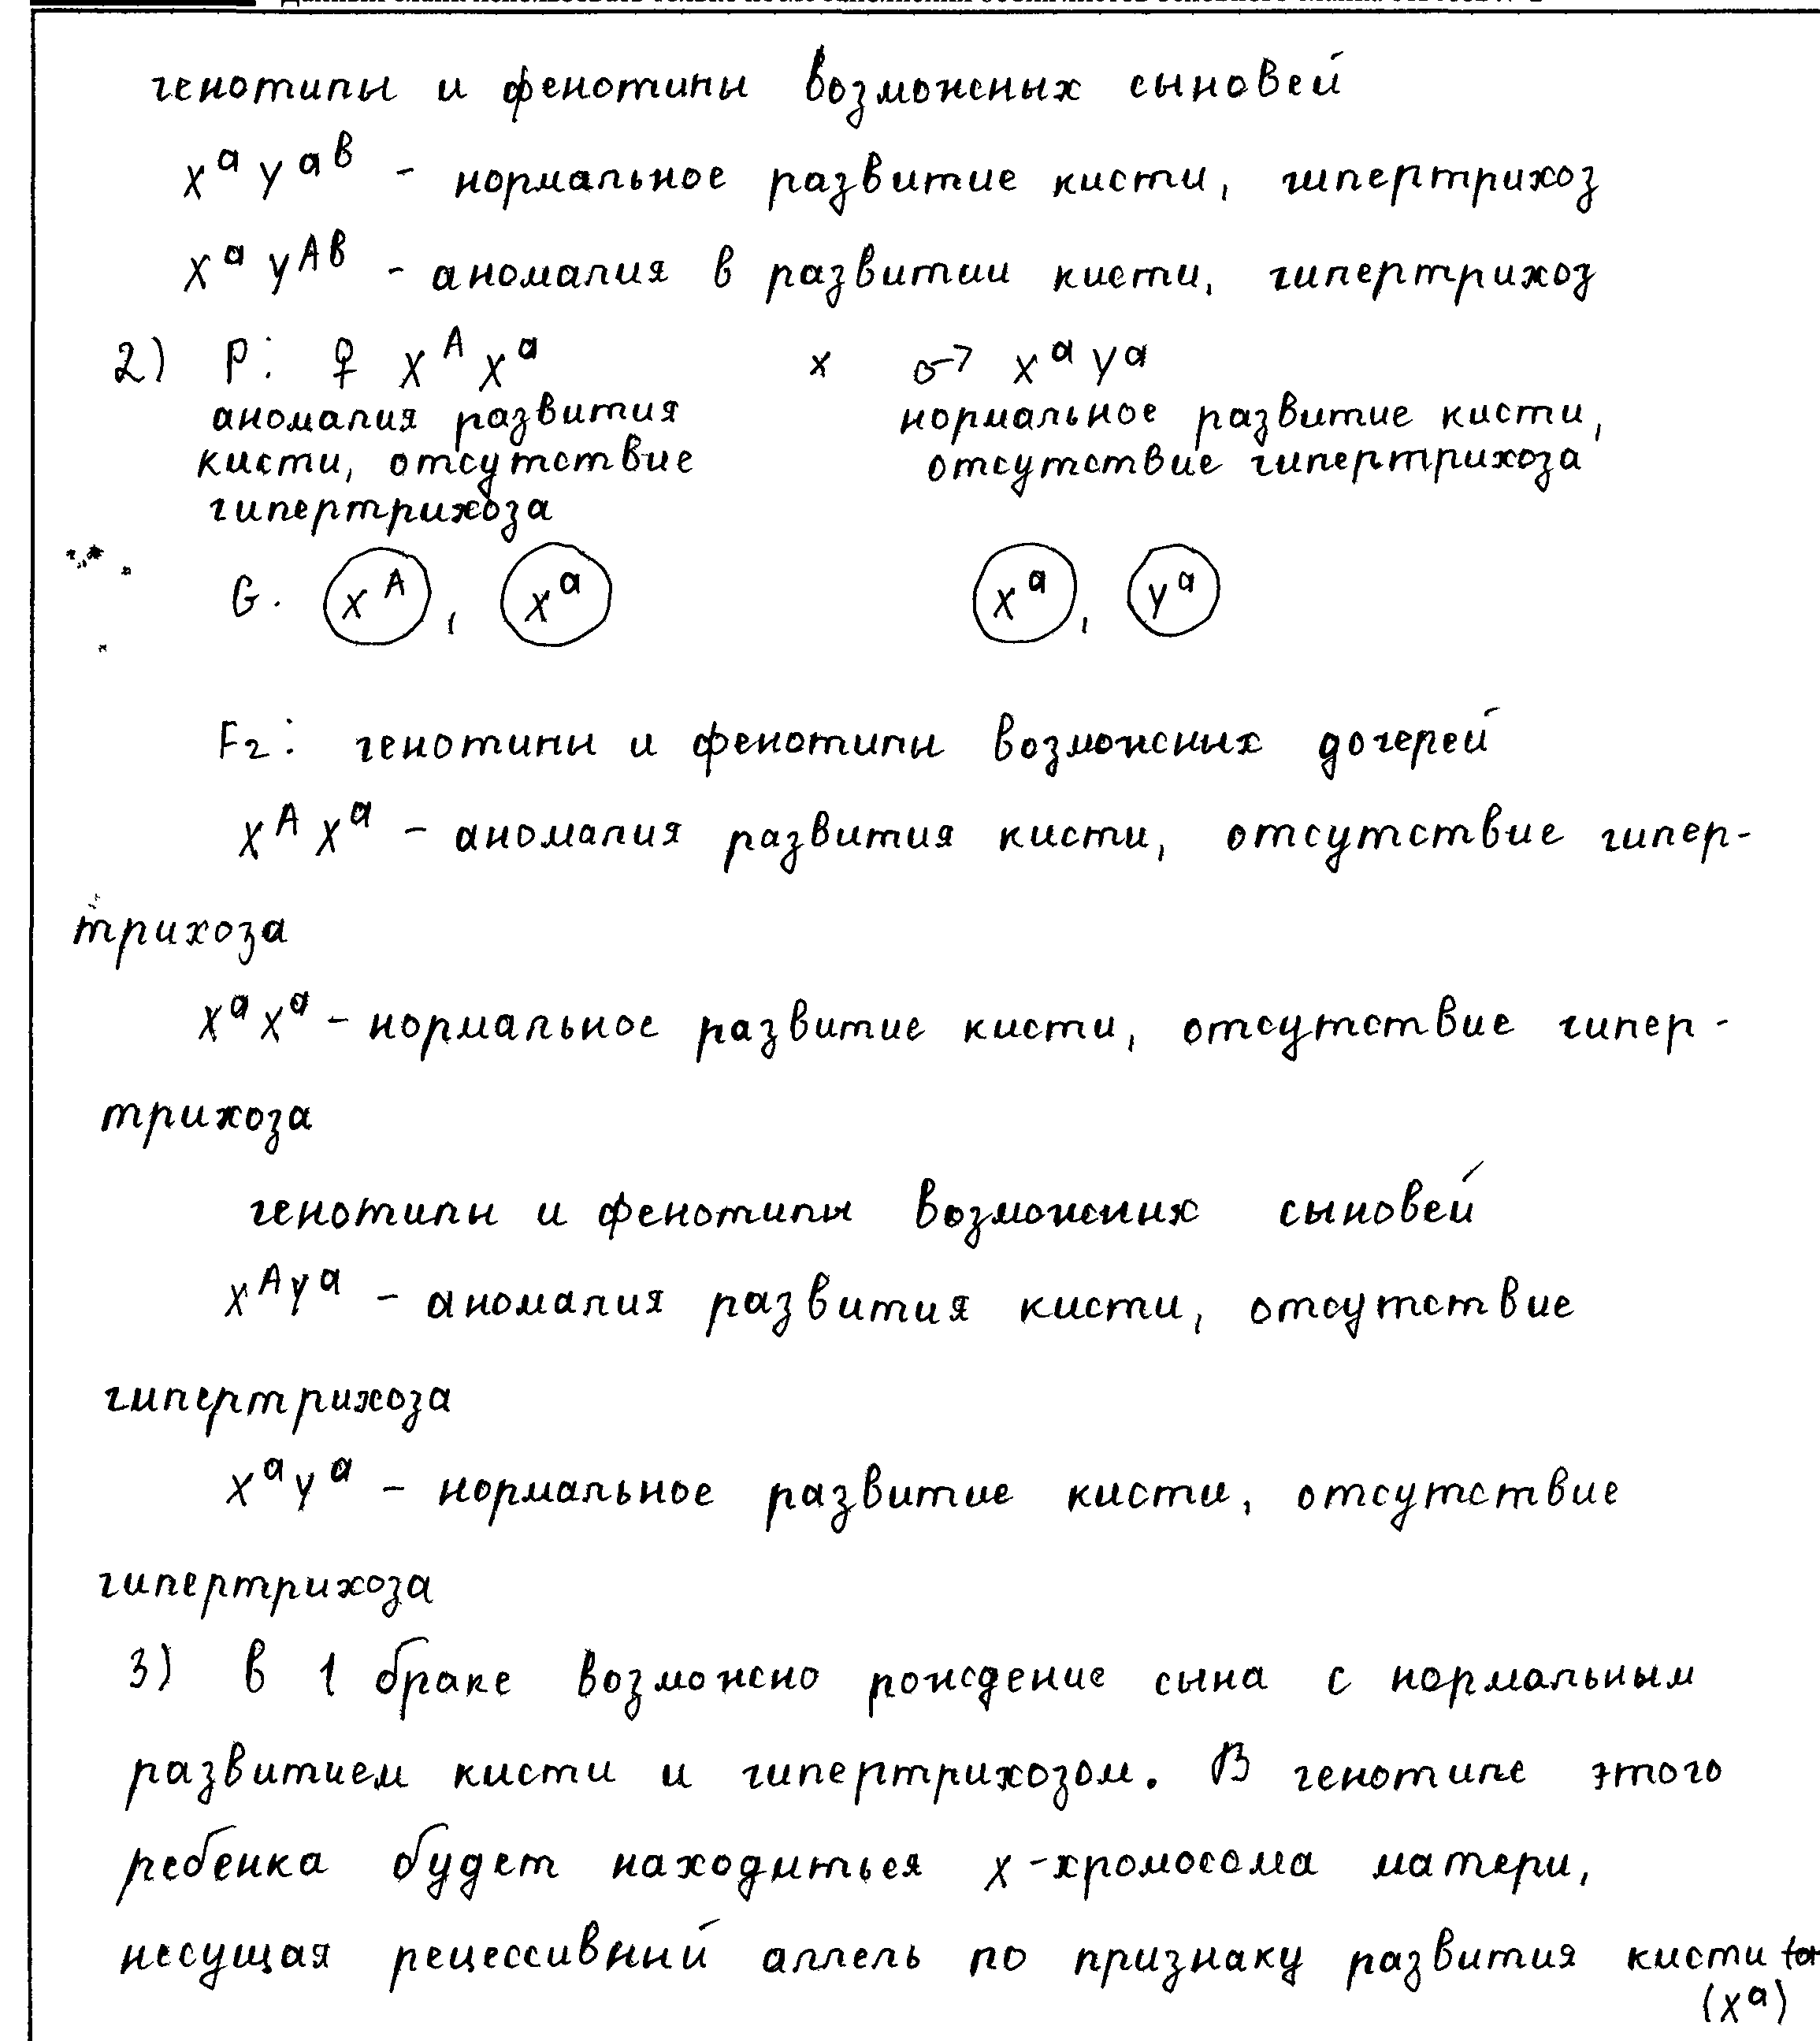 генотипы и фенотипы возможных сыновей
X^a Y^aв - нормальное развитие кисти, гипертрихоз
X^a Y^Aв - аномалия в развитии кисти, гипертрихоз
2) P: ♀ X^A X^a x ♂ X^a Y^a
аномалия развития нормальное развитие кисти,
кисти, отсутствие отсутствие гипертрихоза
гипертрихоза
G. X^A, X^a X^a, Y^a
F2: генотипы и фенотипы возможных дочерей
X^A X^a - аномалия развития кисти, отсутствие гипер-
трихоза
X^a X^a - нормальное развитие кисти, отсутствие гипер-
трихоза
генотипы и фенотипы возможных сыновей
X^A Y^a - аномалия развития кисти, отсутствие
гипертрихоза
X^a Y^a - нормальное развитие кисти, отсутствие
гипертрихоза
3) в 1 браке возможно рождение сына с нормальным
развитием кисти и гипертрихозом. В генотипе этого
ребенка будет находиться X-хромосома матери,
несущая рецессивный аллель по признаку развития кисти
(X^a)